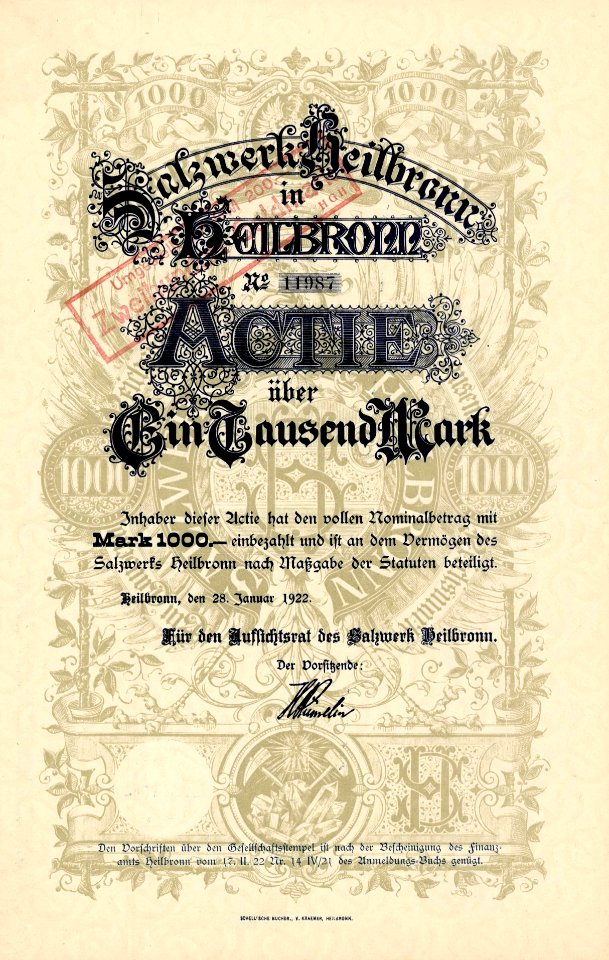 1000 1000
Salzwerk Heilbronn
in
HEILBRONN
No 11987
ACTIE
über
Ein Tausend Mark
1000 1000
Inhaber dieser Actie hat den vollen Nominalbetrag mit
Mark 1000.— einbezahlt und ist an dem Vermögen des
Salzwerks Heilbronn nach Maßgabe der Statuten beteiligt.
Heilbronn, den 28. Januar 1922.
Für den Aufsichtsrat des Salzwerk Heilbronn.
Der Vorsitzende:
Den Vorschriften über den Gesellschaftsstempel ist nach der Bescheinigung des Finanz-
amts Heilbronn vom 17. II. 22 Nr. 14 IV/21 des Anmeldungs-Buchs genügt.
SCHELL'SCHE BUCHDR., V. KRAEMER, HEILBRONN.